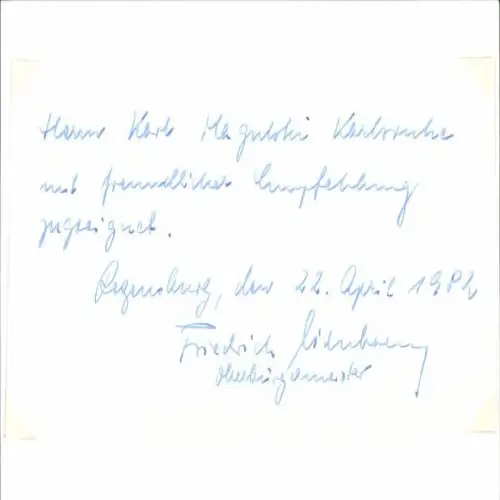 Herrn Karl Magulski Karlsruhe
mit freundlicher Empfehlung
zugeeignet.
Regensburg, den 22. April 1982
Friedrich
Oberbürgermeister